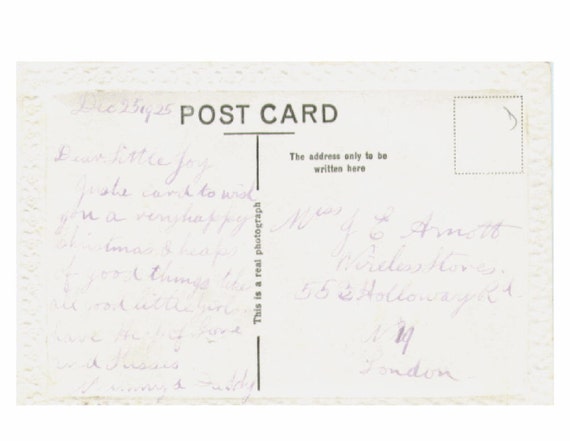 Dec 25 1925
POST CARD
Dear little Joy
Just a card to wish
you a very happy
Christmas & heaps
of good things like
all good little girls
have Heaps of love
and kisses
Mummy & Daddy
This is a real photograph
The address only to be
written here
Miss J E Arnott
Wireless Stores.
552 Holloway Rd
N
London